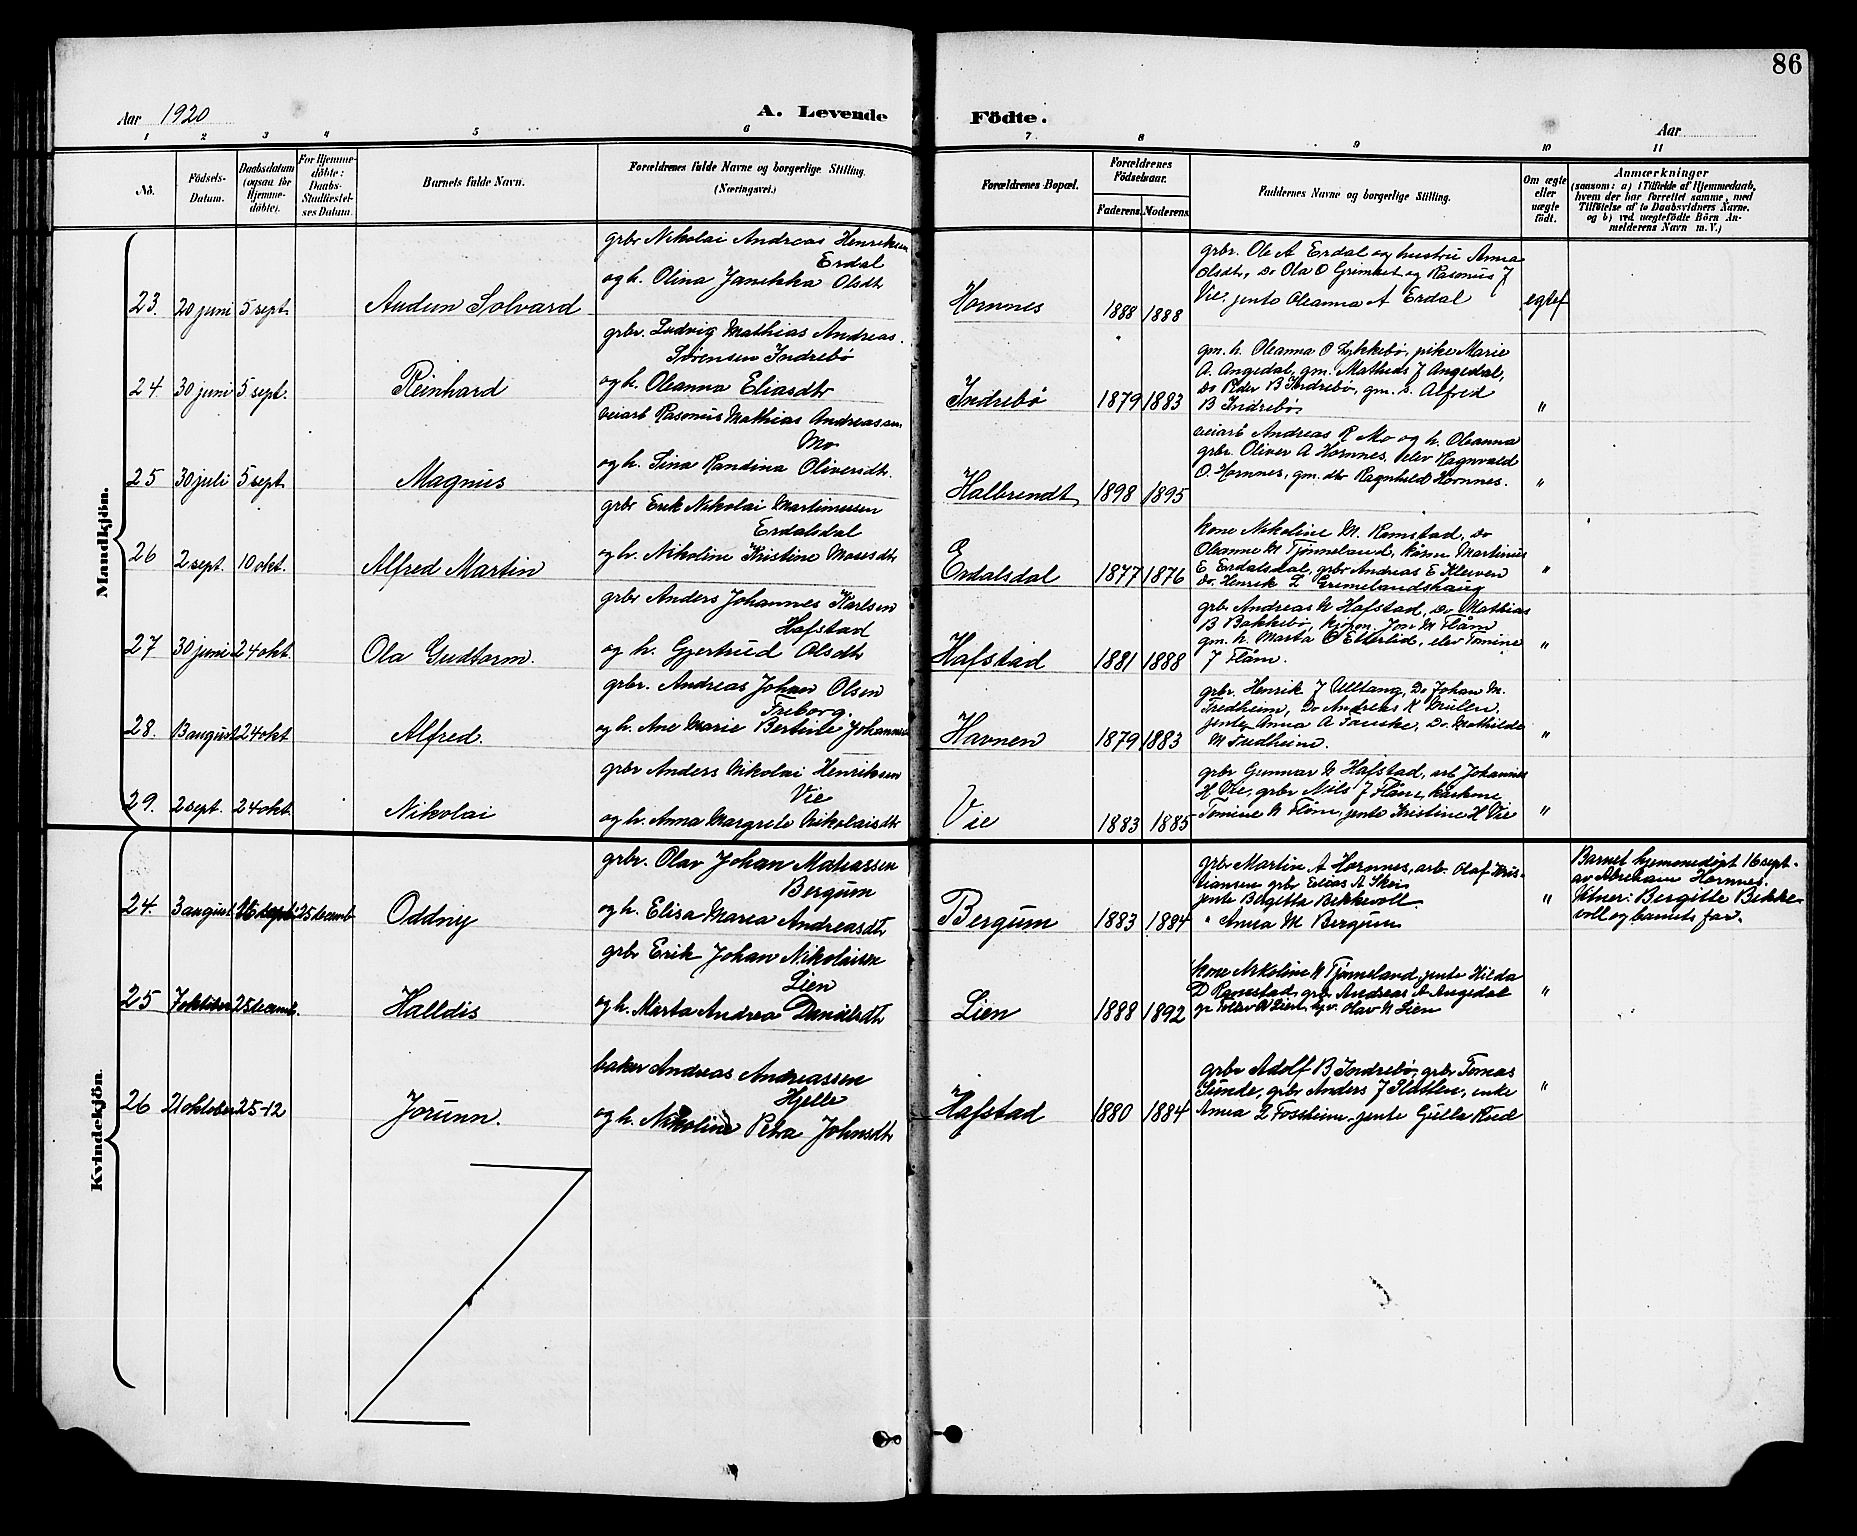 86
Aar 1920
A. Levende Födte.
Aar
1 2 3 4 5 6 7 8 9 10 11
No.
Födsels-Datum.
Daabsdatum (ogsaa for Hjemmedöbte).
For Hjemmedöbte: Daabs-Stadfæstelses Datum.
Barnets fulde Navn.
Forældrenes fulde Navne og borgerlige Stilling. (Næringsvei.)
Forældrenes Bopæl.
Forældrenes Födselsaar.
Faderens. Moderens.
Faddernes Navne og borgerlige Stilling.
Om ægte eller uægte födt.
Anmærkninger
(saasom: a) i Tilfælde af Hjemmedaab,
hvem der har forrettet samme, med
Tilföielse af to Daabsvidners Navne.
og b) ved uægtefödte Börn An-
melderens Navn m. V.)
Mandkjön.
grbr Nikolai Andreas Henriksen
Erdal
og h. Olina Janikka Olsdtr
23. 20 juni 5 sept. Audun Solvard
Hornnes 1888 1888
grbr. Ole A Erdal og hustru Anna
Olsdtr, Do Ola O Grimset og Rasmus J
Vie, jente Oleanna A Erdal
egtef
grbr. Ludvig Mathias Andreas
Sörensen Indrebö
og h. Oleanna Eliasdtr
24. 30 juni 5 sept. Reinhard
Indrebö 1879 1883
gm. h. Oleanna O Lykkebö, pike Marie
A. Angedal, gm. Mathias J Angedal,
do Peder B Indrebö, gm. s. Alfred
B Indrebö
"
veiarb Rasmus Mathias Andreassen
Mo
og h. Sina Randina Oliversdtr
25 30 juli 5 sept. Magnus
Halbrendt 1898 1895
veiarb Andreas R Mo og h. Oleanna
grbr. Oliver A Hornnes, elev Ragnvald
O. Hornnes, gm. dtr Ragnhild Hornnes.
"
grbr Erik Nikolai Martinussen
Erdalsdal
og h. Nikoline Kristine Mosesdtr
26 2 sept. 10 okt. Alfred Martin
Erdalsdal 1877 1876
kone Nikoline M. Ramstad, do
Oleanne M Tjønneland, Martinus
E Erdalsdal, grbr Andreas E Kleiven
do. Henrik L Grimelandshaug
"
grbr Anders Johannes Karlsen
Hafstad
og h. Gjertrud Olsdtr
27 30 juni 24 okt. Ola Gudtorm.
Hafstad 1881 1888
grbr Andreas N Hafstad, do Mathias
B Bakkebö, kjøpm. Jon M Flåm
gm. h. Marta O Etterlid, elev Tomine
J Flåm.
"
grbr. Andreas Johan Olsen
Treborg.
og h. Ane Marie Bertine
28. 13 august 24 okt Alfred.
Havnen 1879 1883
grbr. Henrik J Ulltang, Do Johan M.
Fredheim, Do Andreas K Mulen,
jente Anna A Fauske, Do. Mathilde
M Fredheim.
"
grbr Anders Nikolai Henriksen
Vie
og h. Anna Margrete Nikolaisdtr
29. 2 sept. 24 okt. Nikolai
Vie 1883 1885
grbr Gunnar N Hafstad, arb Johannes
H Vie, grbr Nils J Flåm, kårkone
Tomine N Flåm, jente Kristine H Vie
"
Kvindekjön.
grbr. Olav Johan Matiassen
Bergum
og h. Elisa Maria Andreasdtr
24. 3 august 16 sept. 25 decemb Oddny
Bergum 1883 1884
grbr Martin A Hornnes, arb. Olaf Kris-
tiansen grbr Elias A Skei
jente Birgitta Bekkevoll.
" Anna M Bergum
"
Barnet hjemmedøpt 16 sept.
av Abraham Hornnes.
Vitner: Bergitte Bekke-
voll og barnets far.
grbr Erik Johan Nikolaisen
Lien
og h. Marta Andrea Danielsdtr
25 7 oktober 25 decemb. Halldis
Lien 1888 1892
kone Nikoline N Tjønneland, jente Hilda
D Ramstad, grbr Andreas A Angedal
Olav N Lien
"
baker Andreas Andreassen
Hjelle
og h. Nikoline Petra Johnsdtr
26 21 oktober 25-12 Jorunn.
Hafstad 1880 1884
grbr Adolf B Indrebö, grbr Tomas
Sunde, grbr Anders J Slatten, enke
Anna L Fossheim, jente Gulla
"